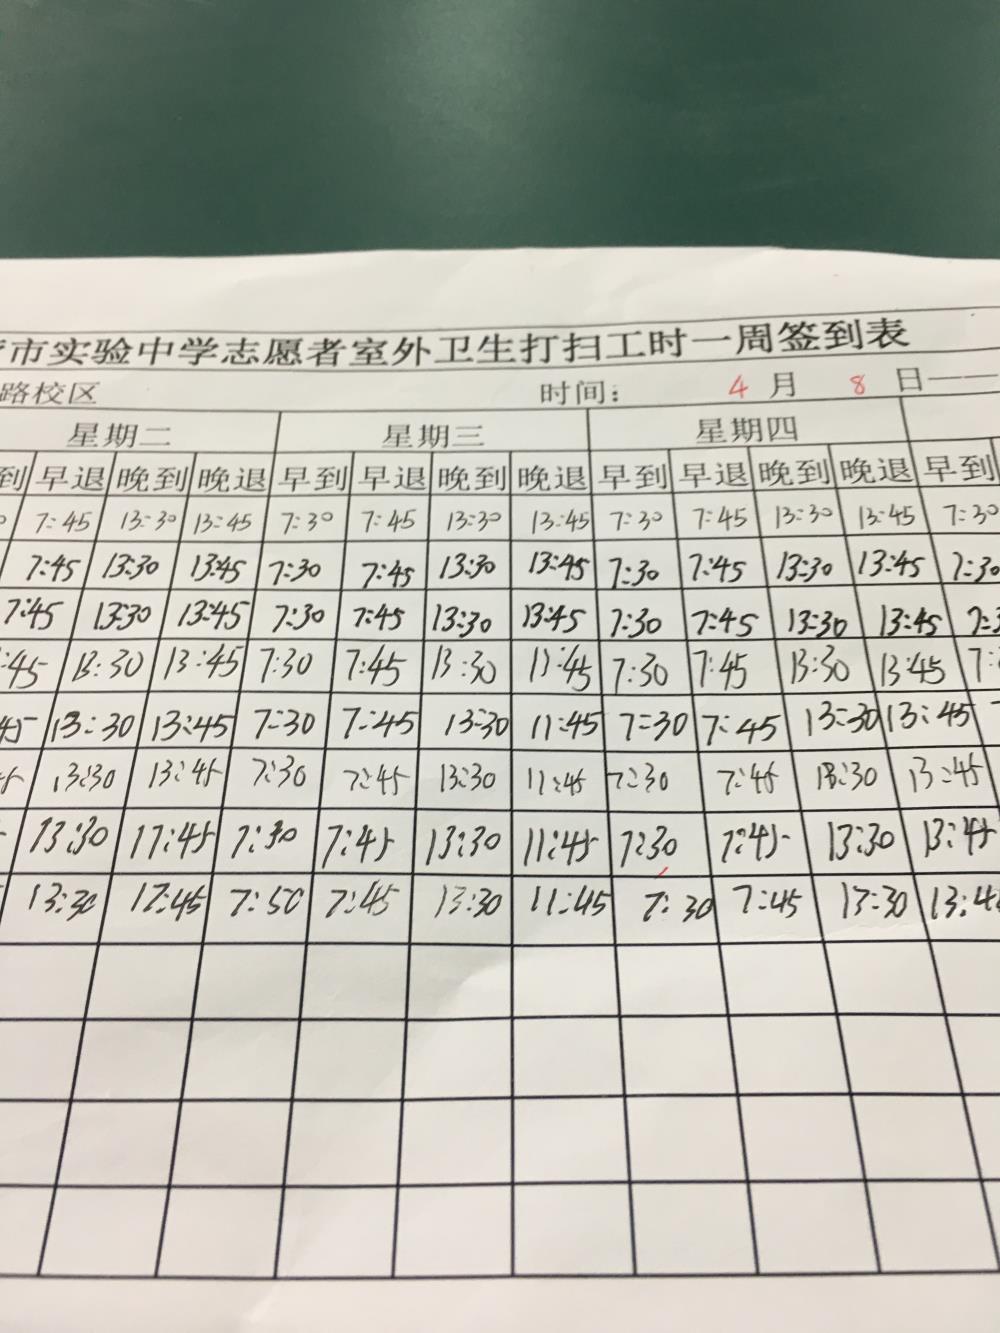 市实验中学志愿者室外卫生打扫工时一周签到表
路校区 时间： 4 月 8 日——
星期二 星期三 星期四
到 早退 晚到 晚退 早到 早退 晚到 晚退 早到 早退 晚到 晚退 早到
7:45 13:30 13:45 7:30 7:45 13:30 13:45 7:30 7:45 13:30 13:45 7:30
7:45 13:30 13:45 7:30 7:45 13:30 13:45 7:30 7:45 13:30 13:45 7:30
7:45 13:30 13:45 7:30 7:45 13:30 13:45 7:30 7:45 13:30 13:45 7:3
:45 13:30 13:45 7:30 7:45 13:30 13:45 7:30 7:45 13:30 13:45 7:
45 13:30 13:45 7:30 7:45 13:30 11:45 7:30 7:45 13:30 13:45
13:30 13:45 7:30 7:45 13:30 11:45 7:30 7:45 13:30 13:45
13:30 11:45 7:30 7:45 13:30 11:45 7:30 7:45 13:30 13:45
13:30 12:45 7:50 7:45 13:30 11:45 7:30 7:45 13:30 13:4